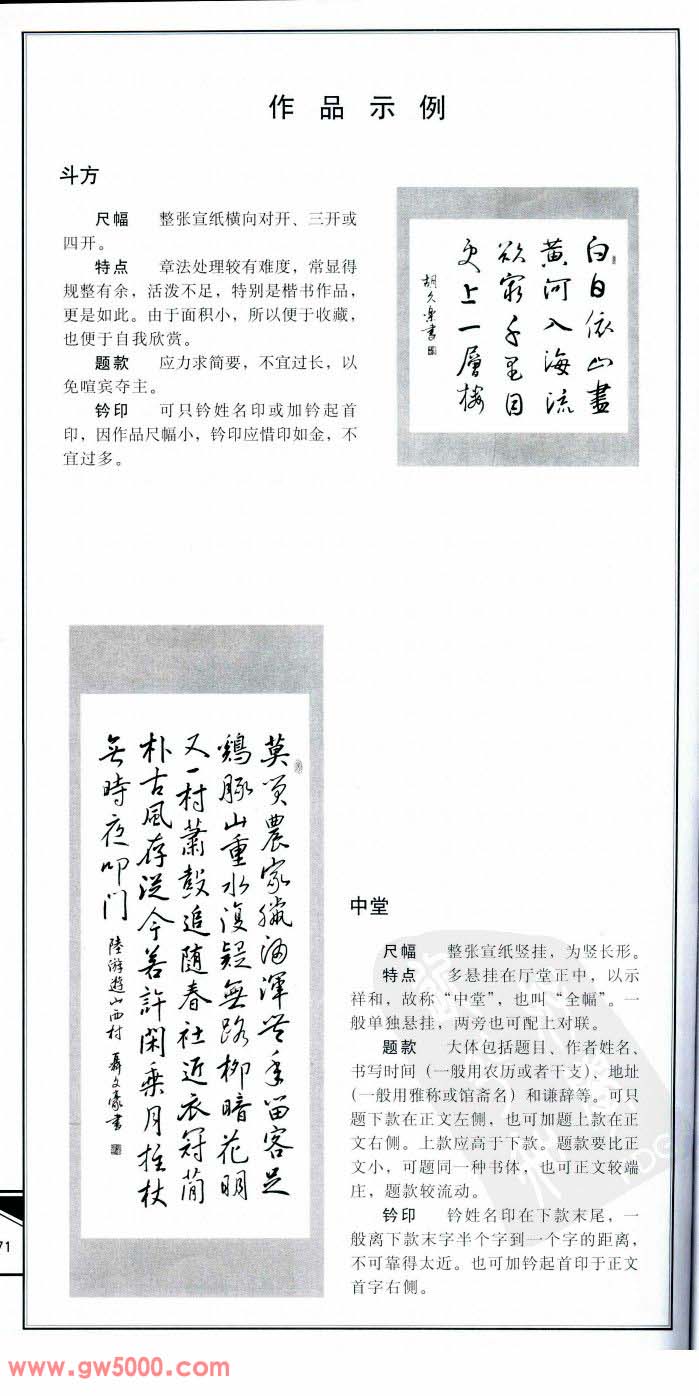 作品示例
斗方
尺幅 整张宣纸横向对开、三开或
四开。
特点 章法处理较有难度，常显得
规整有余，活泼不足，特别是楷书作品，
更是如此。由于面积小，所以便于收藏，
也便于自我欣赏。
题款 应力求简要，不宜过长，以
免喧宾夺主。
钤印 可只钤姓名印或加钤起首
印，因作品尺幅小，钤印应惜印如金，不
宜过多。
白日依山盡
黄河入海流
欲窮千里目
更上一層楼
胡久書
莫笑農家臘酒渾豐年留客足
鷄豚山重水復疑無路柳暗花明
又一村蕭鼓追随春社近衣冠简
朴古風存從今若許閑乘月拄杖
無時夜叩门
陸游遊山西村 聶文豪書
中堂
尺幅 整张宣纸竖挂，为竖长形。
特点 多悬挂在厅堂正中，以示
祥和，故称“中堂”，也叫“全幅”。一
般单独悬挂，两旁也可配上对联。
题款 大体包括题目、作者姓名、
书写时间（一般用农历或者干支）、地址
（一般用雅称或馆斋名）和谦辞等。可只
题下款在正文左侧，也可加题上款在正
文右侧。上款应高于下款。题款要比正
文小，可题同一种书体，也可正文较端
庄，题款较流动。
钤印 钤姓名印在下款末尾，一
般离下款末字半个字到一个字的距离，
不可靠得太近。也可加钤起首印于正文
首字右侧。
71
www.gw5000.com